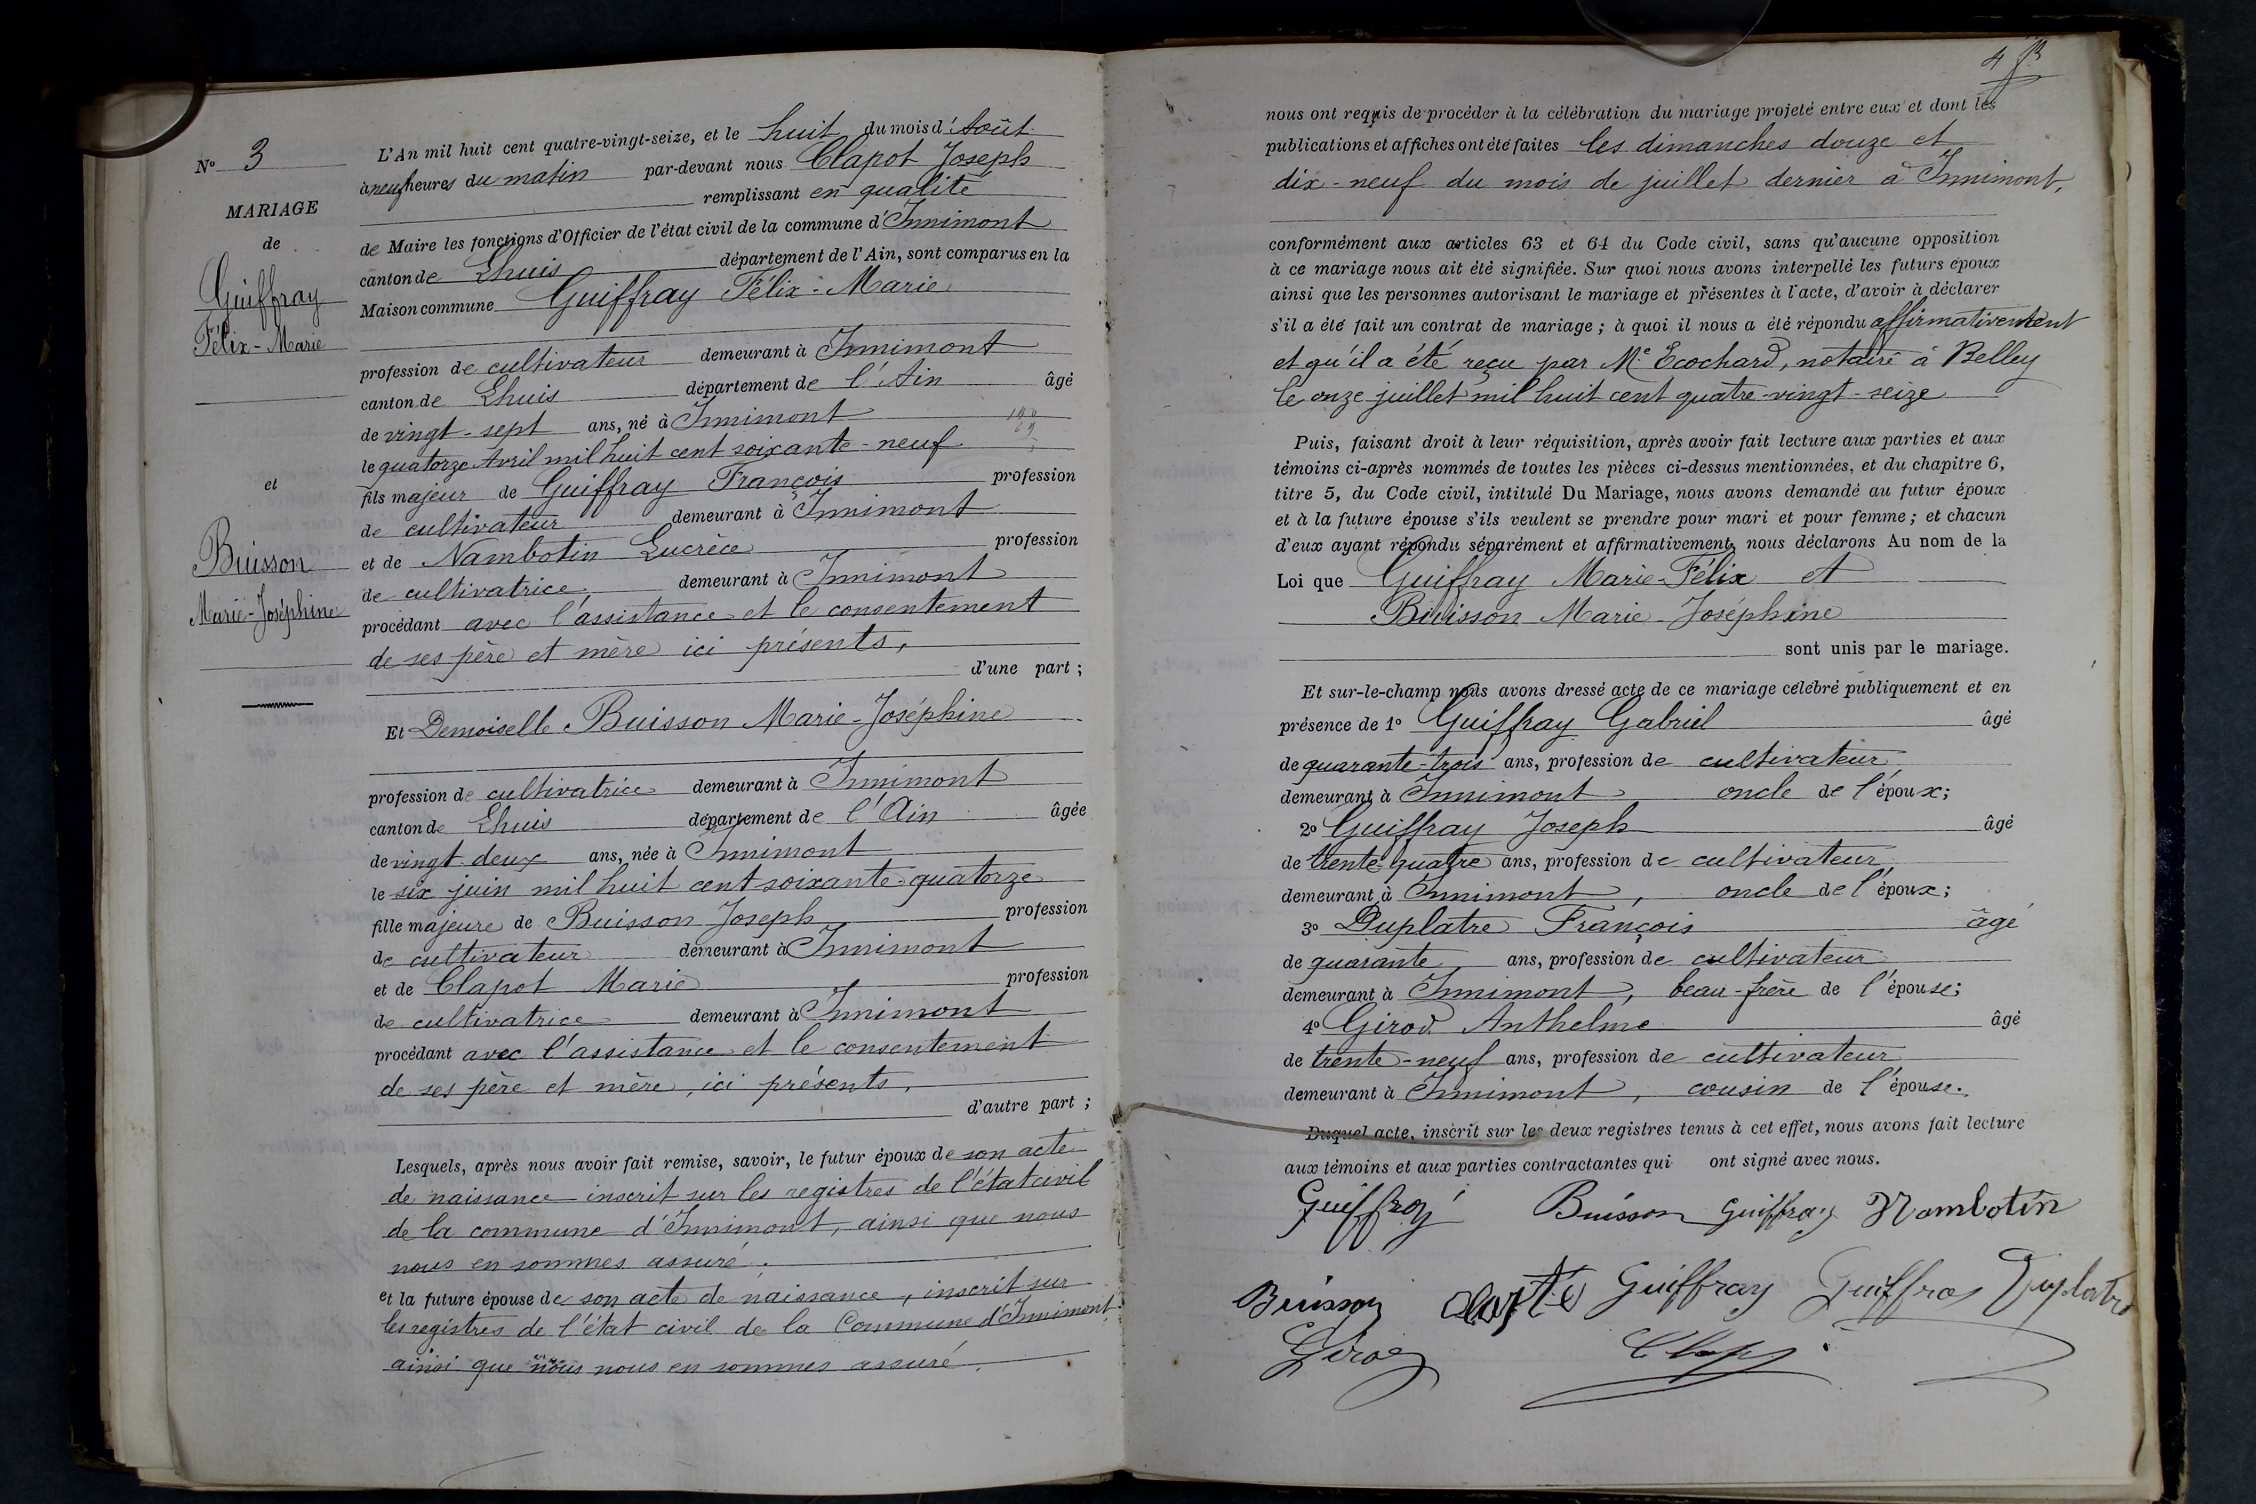 N° 3
MARIAGE
de
Guiffray
Félix-Marie
et
Buisson
Marie-Joséphine
L'An mil huit cent quatre-vingt-seize, et le huit du mois d'Août
à neuf heures du matin par-devant nous Clapot Joseph
remplissant en qualité
de Maire les fonctions d'Officier de l'état civil de la commune d'Innimont
canton de Lhuis département de l'Ain, sont comparus en la
Maison commune Guiffray Félix-Marie
profession de cultivateur demeurant à Innimont
canton de Lhuis département de l'Ain âgé
de vingt-sept ans, né à Innimont
le quatorze Avril mil huit cent soixante-neuf
fils majeur de Guiffray François profession
de cultivateur demeurant à Innimont
et de Nambotin Lucrèce profession
de cultivatrice, demeurant à Innimont
procédant avec l'assistance et le consentement
de ses père et mère ici présents,
d'une part ;
Et Demoiselle Buisson Marie-Joséphine
profession de cultivatrice demeurant à Innimont
canton de Lhuis département de l'Ain âgée
de vingt-deux ans, née à Innimont
le six juin mil huit cent soixante-quatorze
fille majeure de Buisson Joseph profession
de cultivateur demeurant à Innimont
et de Clapot Marie profession
de cultivatrice demeurant à Innimont
procédant avec l'assistance et le consentement
de ses père et mère, ici présents,
d'autre part ;
Lesquels, après nous avoir fait remise, savoir, le futur époux de son acte
de naissance inscrit sur les registres de l'état civil
de la commune d'Innimont, ainsi que nous
nous en sommes assuré.
et la future épouse de son acte de naissance, inscrit sur
les registres de l'état civil de la Commune d'Innimont
ainsi que nous nous en sommes assuré.
4
nous ont requis de procéder à la célébration du mariage projeté entre eux et dont les
publications et affiches ont été faites les dimanches douze et
dix-neuf du mois de juillet dernier à Innimont,
conformément aux articles 63 et 64 du Code civil, sans qu'aucune opposition
à ce mariage nous ait été signifiée. Sur quoi nous avons interpellé les futurs époux
ainsi que les personnes autorisant le mariage et présentes à l'acte, d'avoir à déclarer
s'il a été fait un contrat de mariage ; à quoi il nous a été répondu affirmativement
et qu'il a été reçu par Me Ecochard, notaire à Belley
le onze juillet mil huit cent quatre-vingt-seize
Puis, faisant droit à leur réquisition, après avoir fait lecture aux parties et aux
témoins ci-après nommés de toutes les pièces ci-dessus mentionnées, et du chapitre 6,
titre 5, du Code civil, intitulé Du Mariage, nous avons demandé au futur époux
et à la future épouse s'ils veulent se prendre pour mari et pour femme ; et chacun
d'eux ayant répondu séparément et affirmativement, nous déclarons Au nom de la
Loi que Guiffray Marie-Félix et
Buisson Marie-Joséphine
sont unis par le mariage.
Et sur-le-champ nous avons dressé acte de ce mariage célébré publiquement et en
présence de 1° Guiffray Gabriel âgé
de quarante-trois ans, profession de cultivateur
demeurant à Innimont oncle de l'époux;
2° Guiffray Joseph âgé
de trente-quatre ans, profession de cultivateur,
demeurant à Innimont, oncle de l'époux;
3° Duplatre François âgé
de quarante ans, profession de cultivateur
demeurant à Innimont, beau-frère de l'épouse;
4° Girod Anthelme âgé
de trente-neuf ans, profession de cultivateur
demeurant à Innimont, cousin de l'épouse.
Duquel acte, inscrit sur les deux registres tenus à cet effet, nous avons fait lecture
aux témoins et aux parties contractantes qui ont signé avec nous.
Guiffray Buisson Guiffray Nambotin
Buisson Guiffray Guiffray Duplatre
Girod